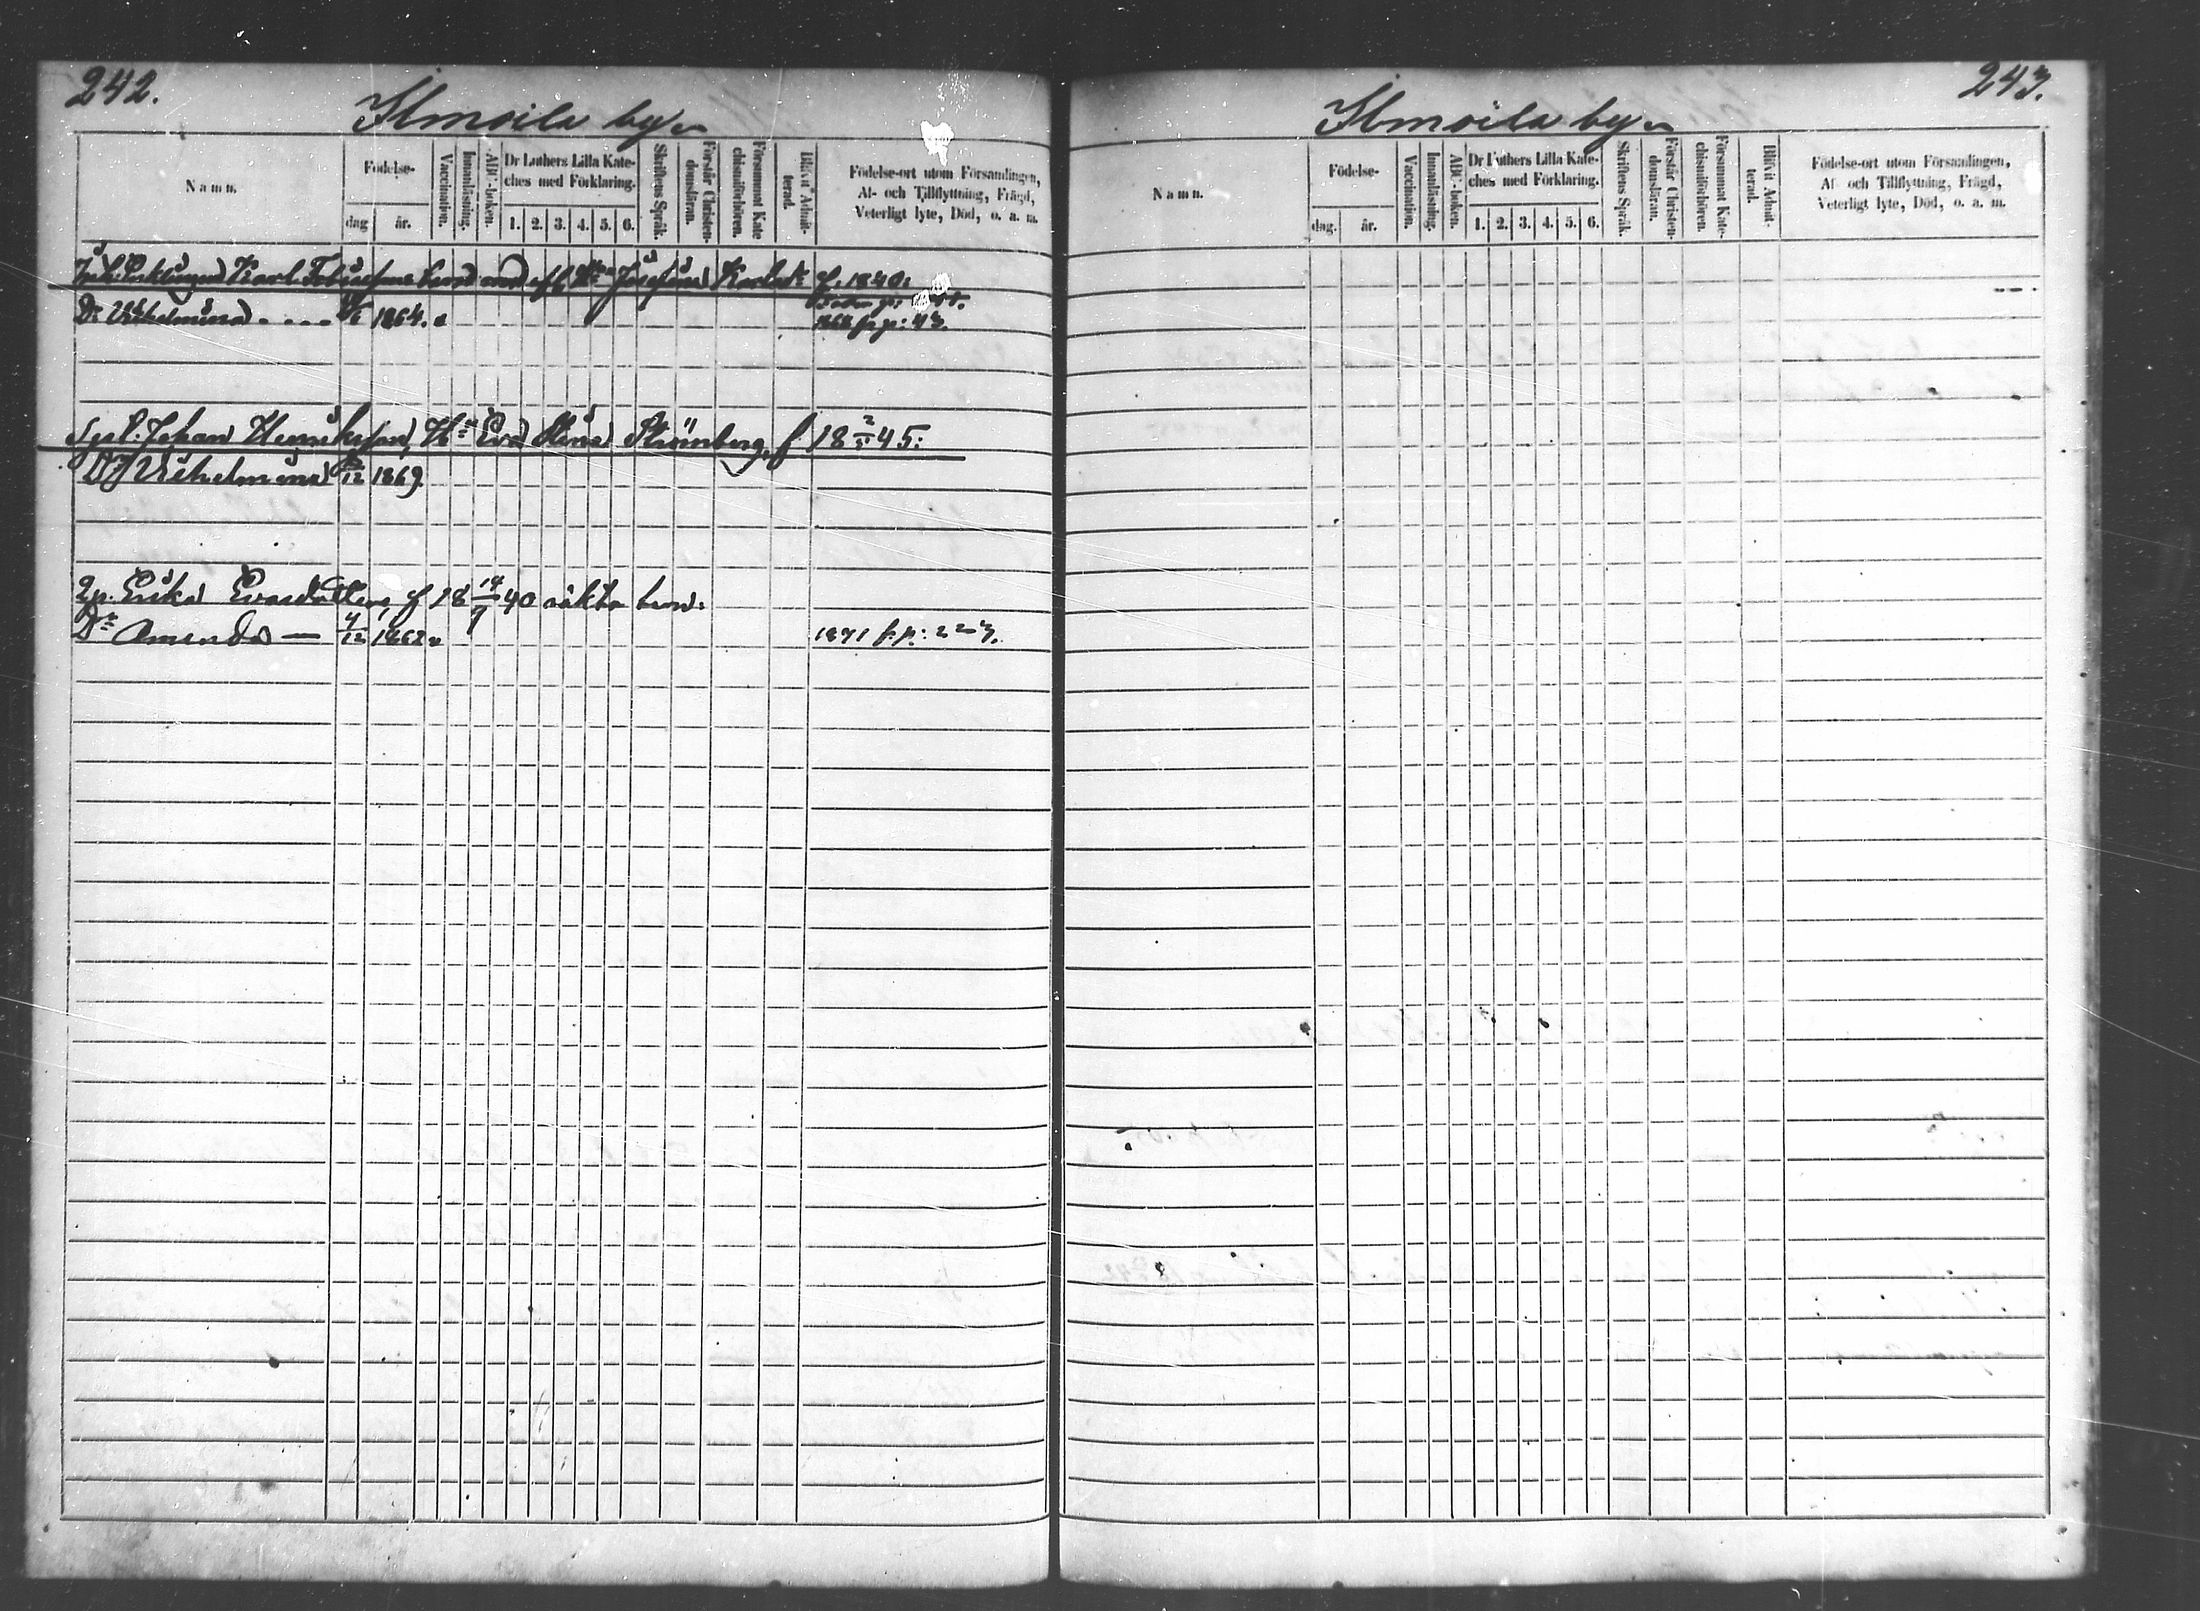 242.
Ilmoila by
Namn.
Födelse-
dag
år.
Vaccination.
Innanläsning.
ABC-boken.
Dr Luthers Lilla Kate-
ches med Förklaring.
1. 2. 3. 4. 5. 6.
Skriftens Språk.
Förstår Christen-
domsläran.
Försummat Kate
chismiförhören.
Blifvit Admit-
terad.
Födelse-ort utom Församlingen,
Af- och Tillflyttning, Frägd,
Veterligt lyte, Död, o. a. m.
Karl f. 1840.
Dr Vilhelmina 1864.
1868 p p: 43.
Johan Henriksson, Hu Eva Stina Strömberg, f 18 2/5 45:
Dr Vilhelmina 1869
Erika Evasdotter, f 18 14/9 40 barn:
Dr Amanda — 4/12 1862
1871 p. p: 223.
243.
Ilmoila by
Namn.
Födelse-
dag.
år.
Vaccination.
Innanläsning.
ABC-boken.
Dr Luthers Lilla Kate-
ches med Förklaring.
1. 2. 3. 4. 5. 6.
Skriftens Språk.
Förstår Christen-
domsläran.
Försummat Kate-
chismiförhören.
Blifvit Admit-
terad.
Födelse-ort utom Församlingen,
Af- och Tillflyttning, Frägd,
Veterligt lyte, Död, o. a. m.